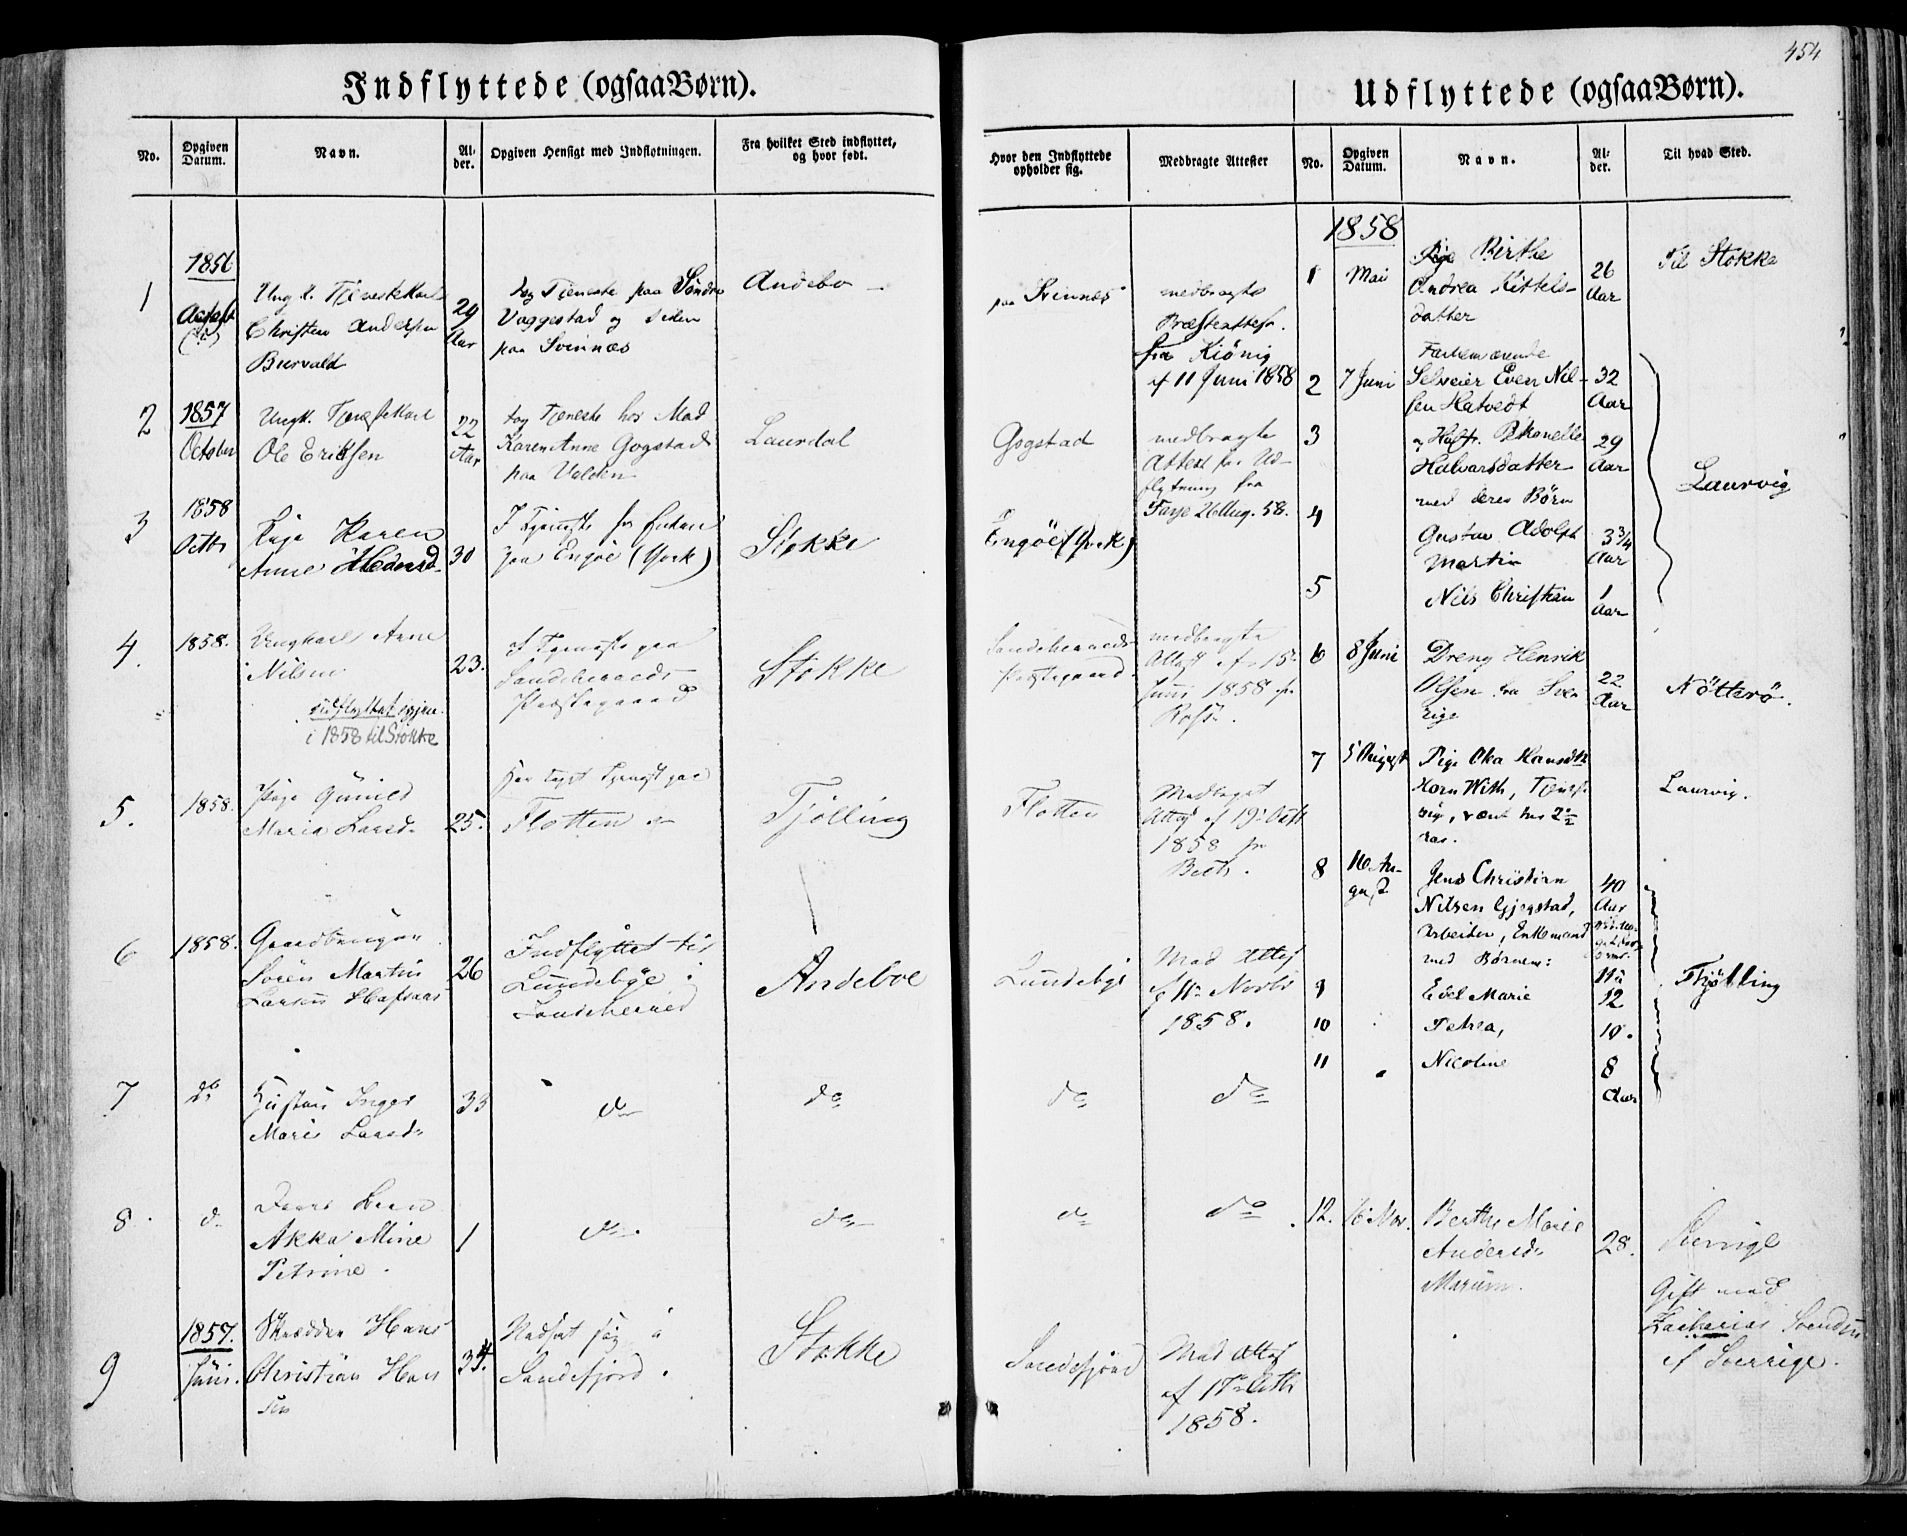 454
Indflyttede (ogsaa Børn).
No.
Opgiven Datum.
Navn.
Alder.
Opgiven Hensigt med Indflytningen.
Fra hvilket Sted indflyttet, og hvor født.
Hvor den Indflyttede opholder sig.
Medbragte Attester
1
1856
Ungk. Tjenestekarl
Christen Andersen
29
Aar
tog Tjeneste paa Søndre
Vaggestad og siden
paa Svinnæs
Andebo
paa Svinnæs
medbragte
Præsteattest
fra
af 11 Juni 1858
2
1857
October
Ungk. Tjenestekarl
Ole Eriksen
22
Aar
tog Tjeneste hos Mad
Karen Anne Gogstad
paa
Laurdal
Gogstad
medbragte
Attest for Ud-
flytning fra
26 Aug. 58.
3
1858
Octbr
Pige Karen
Anne
30
I Tjeneste
paa Engöe (York)
Stokke
Engöe (York)
4.
1858.
Ungkarl Arne
Nilsen
udflyttet igjen
i 1858 til Stokke
23.
I Tjeneste paa
Sandeherreds
Præstegaard
Stokke
Sandeherreds
Præstegaard.
medbragte
Attest af 15de
Juni 1858 fr
5.
1858.
Pige Gunild
Maria Larsd.
25.
Har taget Tjeneste paa
Flotten
Tjölling
Flotten
Medbragt
Attest af 19de Octb
1858 fr
6
1858.
Gaardbruger
Sören Martin
Larsen
26
Indflyttet til
Lundebye i
Sandeherred
Andeboe
Lundebye
Med Attest
af 11te Novbr
1858.
7
do
Hustru Inger
Marie Larsd.
33
do
do
do
do
8.
do
Deres Barn
Akka Mine
Petrine.
1
do.
do
do
do
9
1857.
Juni.
Skrædder Hans
Christian Han
sen
34.
Nedsat sig i
Sandefjord.
Stokke
Sandefjord
Med Attest
af 17de Octb
1858.
Udflyttede (ogsaa Børn).
No.
Opgiven Datum.
Navn.
Alder.
Til hvad Sted.
1858
1
Mai
Pige Birthe
Andrea Kittels-
datter
26
Aar
Til Stokke
2
7 Juni
Selveier Even Nil-
sen Hatvedt
32
Aar
3
og Hustr. Petronelle
Halvorsdatter
29
Aar
med deres Børn
4
Gustav Adolph
Martin
3 3/4
Aar
5
Nils Christian
1
Aar
Laurvig
6
8 Juni
Dreng Henrik
Olsen fra Sver
rige
22
Aar
Nötterö.
7
5 August
Pige Oka Hansdtr
Horn With,
Laurvig.
8
16 Au-
gust
Jens Christian
Nilsen Gjegstad,
Arbeider, Enkemand
med Børnene:
40
Aar
9
Edel Marie
12
10
Petrea,
10.
11
Nicoline
8
Aar
Thjölling
12.
16 Nov.
Berthe Marie
Andersd.
28.
Sverrige
Gift med
Zacharias Svendsen
af Sverrige.